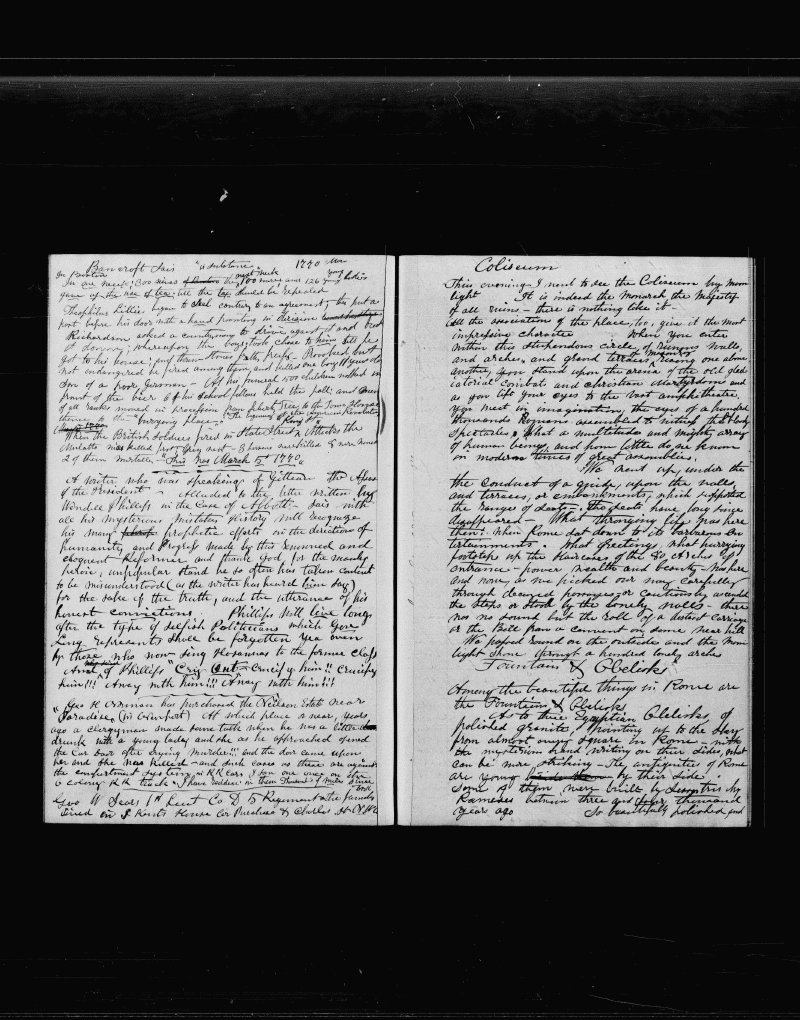 Bancroft Sais "a substance" 1770
In Boston
In one week; 300 wives
Theophilus Lillie began to sell contrary to an agreement,
post before his door with a hand pointing in derision
Richardson asked a countryman to drive against it and break
it down; whereupon the boys; took close to him till he
got to his house; and threw
not endangered he fired among them and killed one boy 11 years old
Son of a poor German - At his funeral 500 children walked in
front of the bier 6 of his School fellows held the pall; and men
of all ranks moved in procession from Liberty Tree to the Town House
thence to the "burying place"
When the British Soldiers fired in State Street & Attucks the
Mulatto was killed
2 of them mortally - This was March 5th 1770.
A writer who was speaking of Gitteau the Assn
of the President - Alluded to the letter written by
Wendell Phillips in the Case of Abbott - Sais with
all his mysterious mistakes History will recognize
his many prophetic efforts in the direction of
humanity and Progress made by this renowned and
eloquent Reformer and thank God for the manly
heroic, unpopular stand he so often has taken content
to be misunderstood (as the writer has heard him say)
for the sake of the truth, and the utterance of his
honest convictions Phillips Will live long
after the type of Selfish Politicians which Gov
Long represents shall be forgotten Yea even
by those who now sing Hosannas to the former class
And of Phillips "Cry Out - Crucify him!! Crucify
him!!! Away with him!!! Away with him!!!
"Geo K Ordman has purchased the Neilson Estate near
Paradise (in Newport) At which place or near, years
ago a clergyman made some talk when he was a little
drunk with a young lady and she as he approached opened
the Car Door after crying Murder!!! and the dor came upon
her and She was killed - and such cases as these are against
the compartment System on RR Cars
Geo W Sears 1st Lieut Co D 5 Regiment & the family
lived in J Kents House Cor Purchase & Charles St N.H.
Coliseum
This evening I went to see the Coliseum by moon
light. It is indeed the Monarch, the Majesty
of all ruins - there is nothing like it -
All the associations of the place, too, give it the most
impressive character When you enter
within this stupendous circle of ruinous walls,
and arches, and grand terraces of masonry rising one above
another, you stand upon the arena of the old glad
iatorial Combat and Christian Martyrdom and
as you lift your eyes to the vast amphitheatre
You meet in imagination, the eyes of a hundred
thousands Romans assembled to witness the bloody
Spectacles. What a multitude and mighty array
of human beings, and how little do we know
in modern times of great assemblies.
We went up, under the
the Conduct of a guide, upon the walls,
and terraces, or embankments, which supported
the ranges of Seats - The Seats have long since
disappeared - What thronging life was here
then: when Rome sat down to its barbarous En
tertainments. What greetings, what hurrying
footsteps up the staircases of the 80, Arches of
entrance - power wealth and beauty - was here
and now, as we picked our way Carefully
through decayed passages, or Cautiously ascended
the steps or stood by the lonely walls - there
was no sound but the roll of a distant Carriage
or the Bell from a Convent on some near hill
We passed round on the outside and the Moon
light Shone through a hundred lonely arches
Fountains & Obelisks"
Among the beautiful things in Rome are
the Fountains & Obelisks
As to these Egyptian Obelisks, of
polished granite, & pointing up to the sky
from almost every Square in Rome - with
the mysterious hand writing on their sides, what
can be more striking - The antiquities of Rome
are young by their side.
Some of them were built by Sesostris by
Rameses between three and four thousand
Years ago So beautifully polished, and